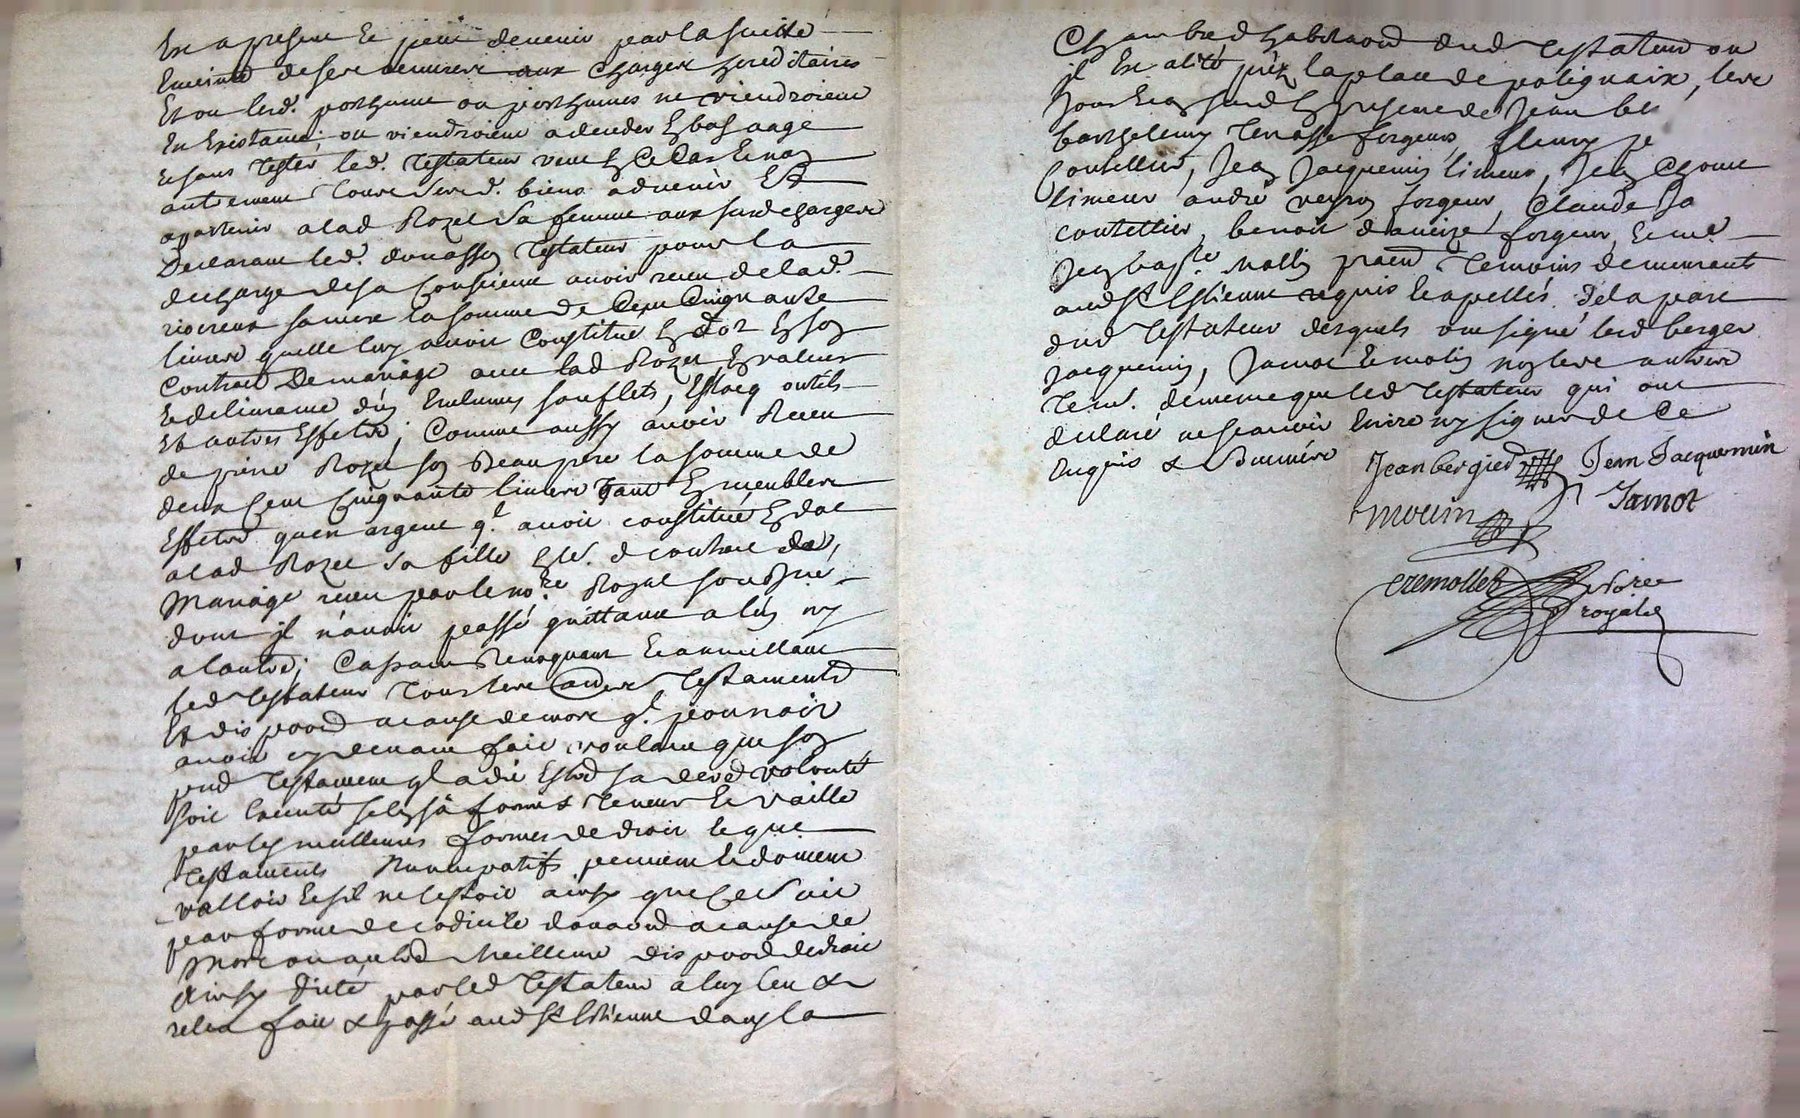 Est a present et peut devenir par la suitte
Enceinte de sere demurere aux charges hereditaires
Et ou lesd. posthume ou posthumes ne viendroient
En Existance, ou viendroient a deceder En bas aage
Et sans tester led. Testateur veut En Ce Cas Et non
autrement toure sesd. biens advenir Et
apartenir a lad Rozet Sa femme aux susd charges
Declarant led. donasson Testateur pour la
decharge de sa Conscience avoir receu de lad.
sa mere la somme de Cent Cinquante
livres quelle luy avoit Constitué En dot En son
Contract De mariage avec lad Rozet, En valeur
Et delivrance d'un Enclumes souflets, Estocq outils
Et autres Effets; Comme aussy avoir Receu
de pierre Rozet son Beaupere la somme de
deux Cent Cinquante livres tant En meubles
Effets quen argent ql avoit constitué En dot
a lad Rozet Sa fille En sd contract de
Mariage receu par le nore Royal soubsné
dont il n'avoit passé quittance a lun ny
a lautre; Cassant Revoquant Et annullant
led Testateur Tous ses autres Testaments
Et dispoond a cause de mort ql pourroit
avoir cy devant fait voulant que son
pnt Testament ql a dit Estre sa dere volonté
soit Executé selon sa forme & teneur Et vaille
par les meilleures formes de droit Et que
Testaments Nuncupatifs peuvent Et doivent
valloir Et sil ne lestoit ainsy que Ce soit
par forme de codicile donaond a cause de
Mort ou autre Meilleure dispoond de droit
Ainsy dicté par led Testateur a luy leu &
releu fait & passé aud St Estienne dans la
Chambre d habitaond dud Testateur ou
il Est alité prez la place de polignaix, les
jour Et an susd En presence de Jean bt
barthelemy Terrasse forgeur, fleury
Coutellier, Jean Jacquemin limeur, Jean Chome
limeur andré veyron forgeur, Claude
coutellier, benoit forgeur, Et me
Jean bapte Mollin praend temoins demeurants
aud St Estienne requis Et apellés de la part
dud Testateur desquels ont signé lesd berger
Jacquemin, Jamot Et molin non les autres
tem. de meme que led Testateur qui ont
declaré ne scavoir Ecrire ny signer de Ce
Enquis & Sommés
Jean bergier Jean Jacquemin
Molin Jamot
Cremollet Nore
royal